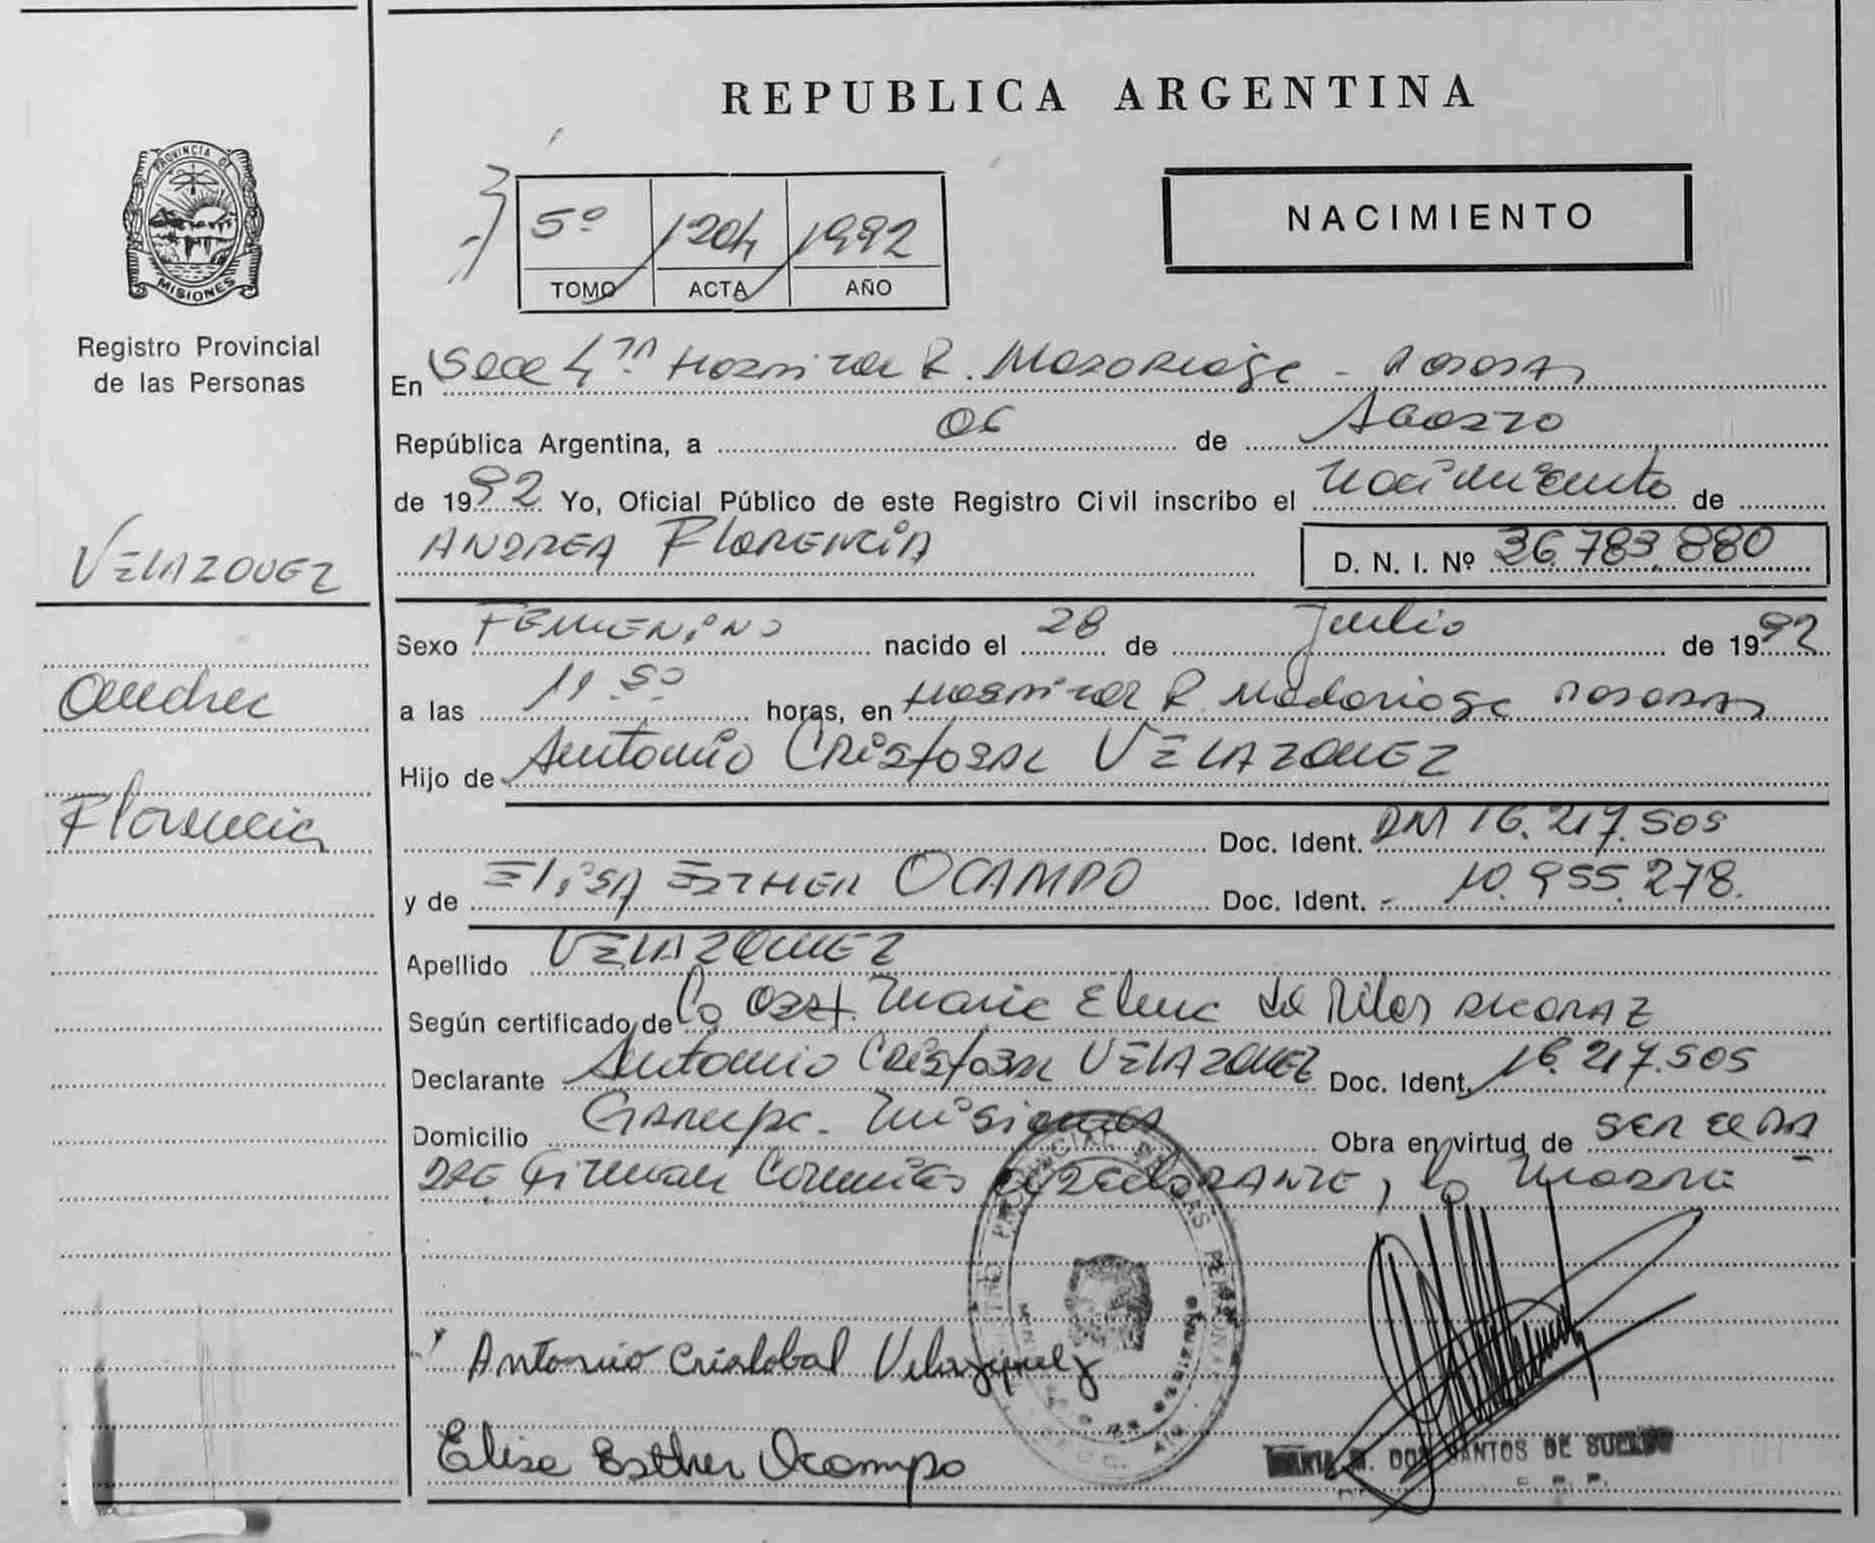 REPUBLICA ARGENTINA
PROVINCIA DE
MISIONES
Registro Provincial
de las Personas
NACIMIENTO
5º 1204 1992
TOMO ACTA AÑO
En Secc 4ta Hospital R. Madariaga - Posadas
República Argentina, a 06 de Agosto
de 1992 Yo, Oficial Público de este Registro Civil inscribo el nacimiento de
VELAZQUEZ
ANDREA FLORENCIA D. N. I. Nº 36.783.880
Sexo FEMENINO nacido el 28 de Julio de 1992
Andrea
a las 11.50 horas, en Hospital R. Madariaga Posadas
Hijo de Antonio Cristobal VELAZQUEZ
Florencia
Doc. Ident. DNI 16.217.505
y de ELISA ESTHER OCAMPO Doc. Ident. 10.955.278.
Apellido VELAZQUEZ
Según certificado de la Obst. Maria Elena de
Declarante Antonio Cristobal VELAZQUEZ Doc. Ident. 16.217.505
Domicilio Garupa - Misiones Obra en virtud de SER EL PA
DRE Firman Conmigo el DECLARANTE, la MADRE
Antonio Cristobal Velazquez
Elisa Esther Ocampo
MARIA M. DOS SANTOS DE